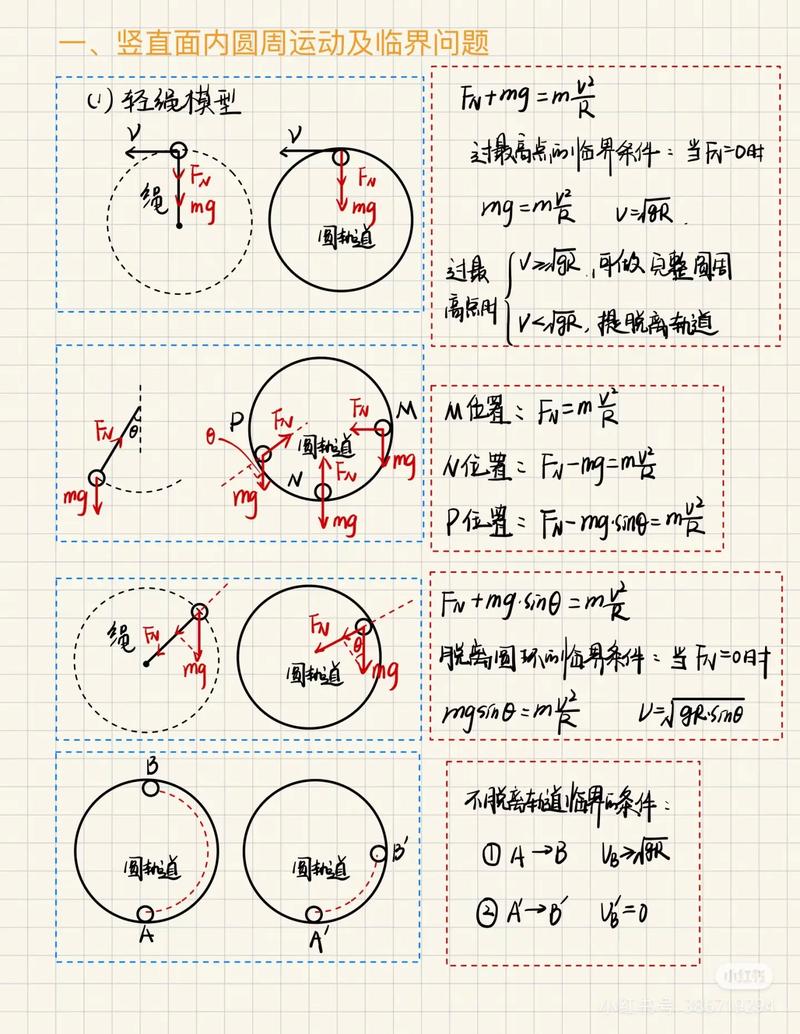 一、竖直面内圆周运动及临界问题
(1)轻绳模型
V
绳
F_N
mg
V
F_N
mg
圆轨道
F_N+mg=m\frac{v^2}{R}
过最高点的临界条件：当F_N=0时
mg=m\frac{v^2}{R} V=\sqrt{gR}.
过最高点时
V≥\sqrt{gR}，可做完整圆周
V<\sqrt{gR}，提脱离轨道
F_N
θ
mg
P
θ
F_N
mg
圆轨道
N
F_N
mg
F_N
M
mg
M位置：F_N=m\frac{v^2}{R}
N位置：F_N-mg=m\frac{v^2}{R}
P位置：F_N-mg·sinθ=m\frac{v^2}{R}
绳
F_N
mg
F_N
θ
mg
圆轨道
F_N+mg·sinθ=m\frac{v^2}{R}
脱离圆环的临界条件：当F_N=0时
mgsinθ=m\frac{v^2}{R} V=\sqrt{gR·sinθ}
B
圆轨道
A
B′
圆轨道
A′
不脱离轨道临界的条件：
① A→B V_B≥\sqrt{gR}
② A′→B′ V_B′=0
小红书
小红书号：386719294